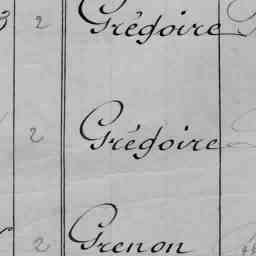 3 2 Grégoire
2 Grégoire
2 Grenon